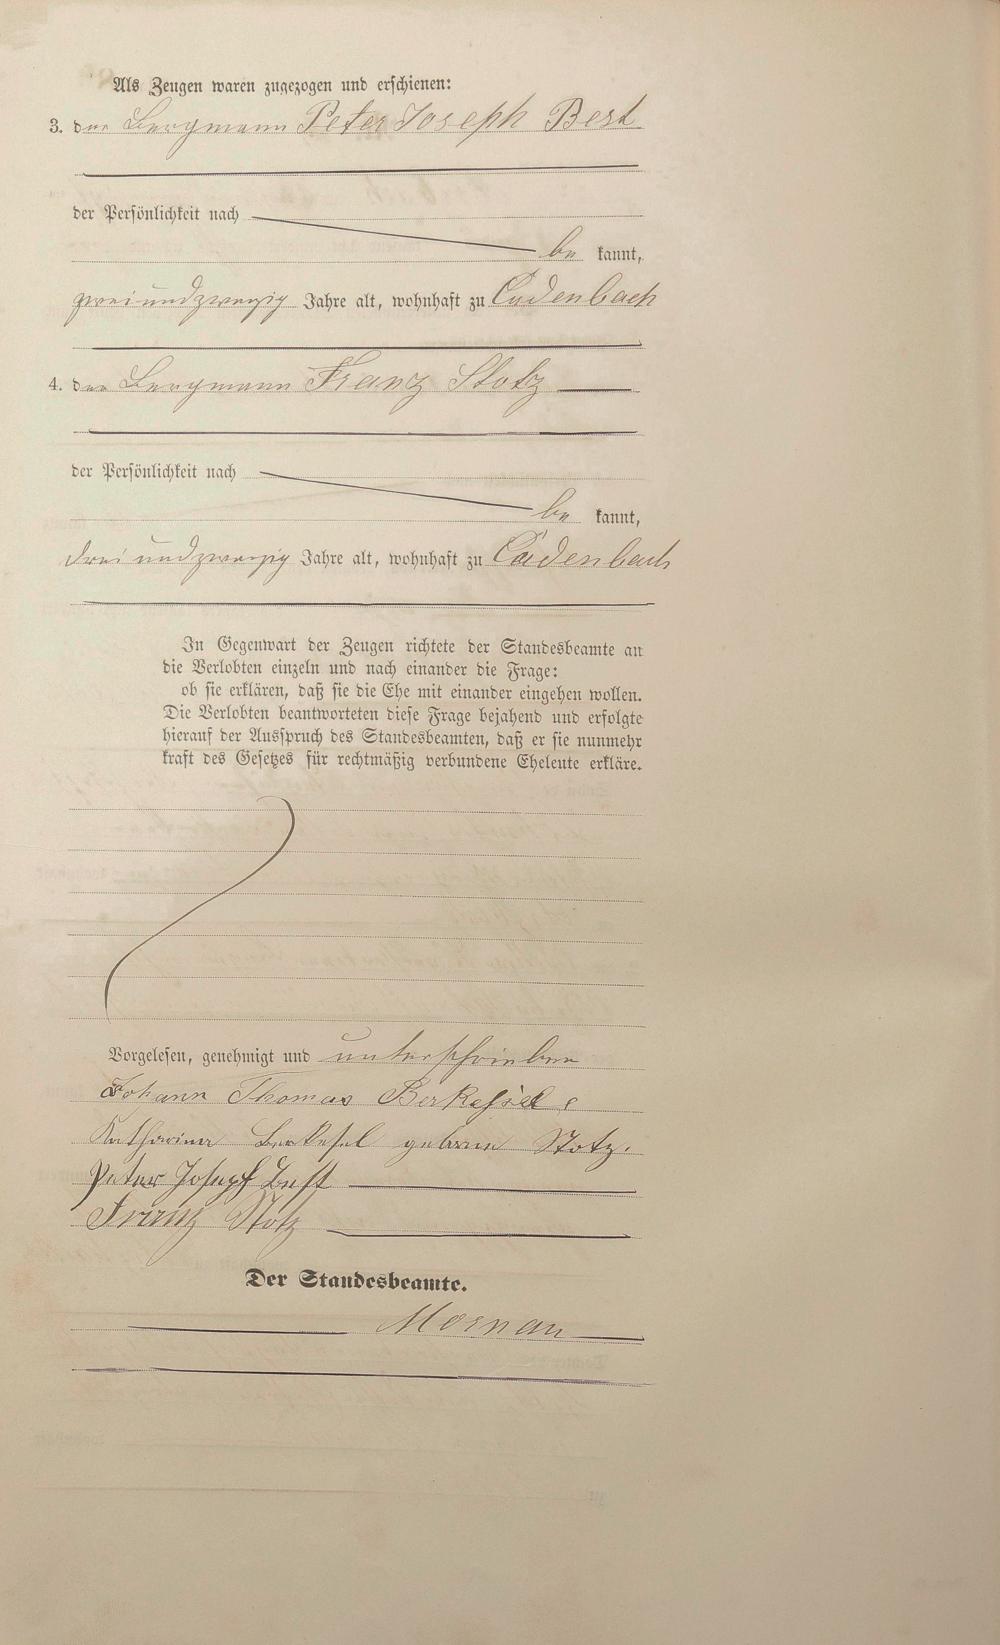 Als Zeugen waren zugezogen und erschienen:
3. der Bergmann Peter Joseph Best
der Persönlichkeit nach
be kannt,
zweiundzwanzig Jahre alt, wohnhaft zu Cadenbach
4. der Bergmann Franz Stotz
der Persönlichkeit nach
be kannt,
dreiundzwanzig Jahre alt, wohnhaft zu Cadenbach
In Gegenwart der Zeugen richtete der Standesbeamte an
die Verlobten einzeln und nach einander die Frage:
ob sie erklären, daß sie die Ehe mit einander eingehen wollen.
Die Verlobten beantworteten diese Frage bejahend und erfolgte
hierauf der Ausspruch des Standesbeamten, daß er sie nunmehr
kraft des Gesetzes für rechtmäßig verbundene Eheleute erkläre.
Vorgelesen, genehmigt und unterschrieben
Johann Thomas
Katharina Berkesel geborne Stotz.
Peter Joseph Best
Franz Stotz
Der Standesbeamte.